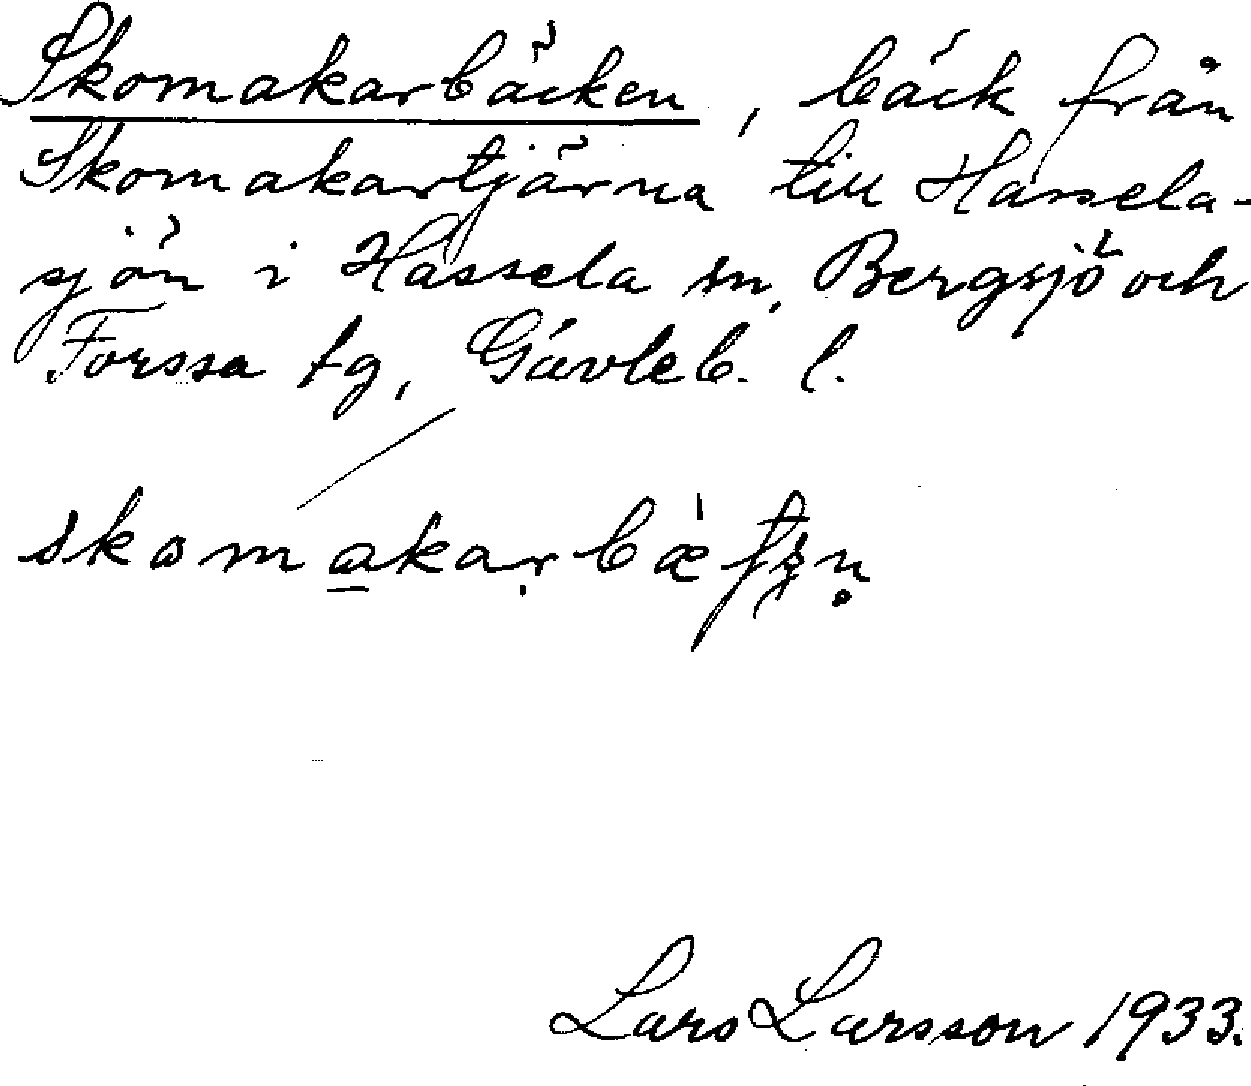 Skomakarbäcken, bäck från
Skomakartjärna till Hassela-
sjön i Hassela sn, Bergsjö och
Forssa tg, Gävleb. l.
Lars Larsson 1933.